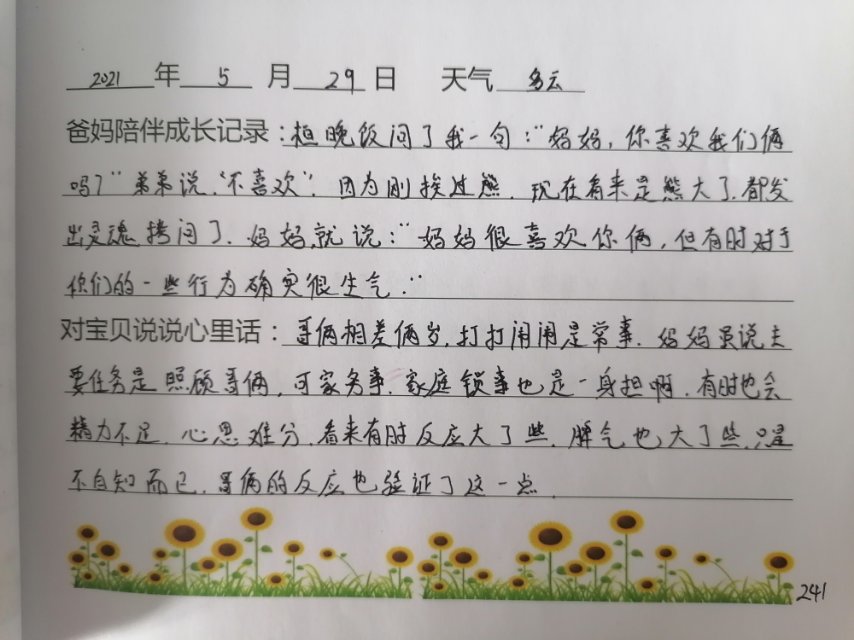 2021 年 5 月 29 日 天气 多云
爸妈陪伴成长记录：桓晚饭问了我一句：“妈妈，你喜欢我们俩
吗？”弟弟说，“不喜欢”，因为刚挨过熊，现在看来是熊大了，都发
出灵魂拷问了，妈妈就说：“妈妈很喜欢你俩，但有时对于
你们的一些行为确实很生气．”
对宝贝说说心里话：哥俩相差俩岁，打打闹闹是常事．妈妈虽说主
要任务是照顾哥俩，可家务事．家庭锁事也是一身担啊，有时也会
精力不足，心思难分，看来有时反应大了些，脾气也大了些，只是
不自知而已，哥俩的反应也验证了这一点．
241